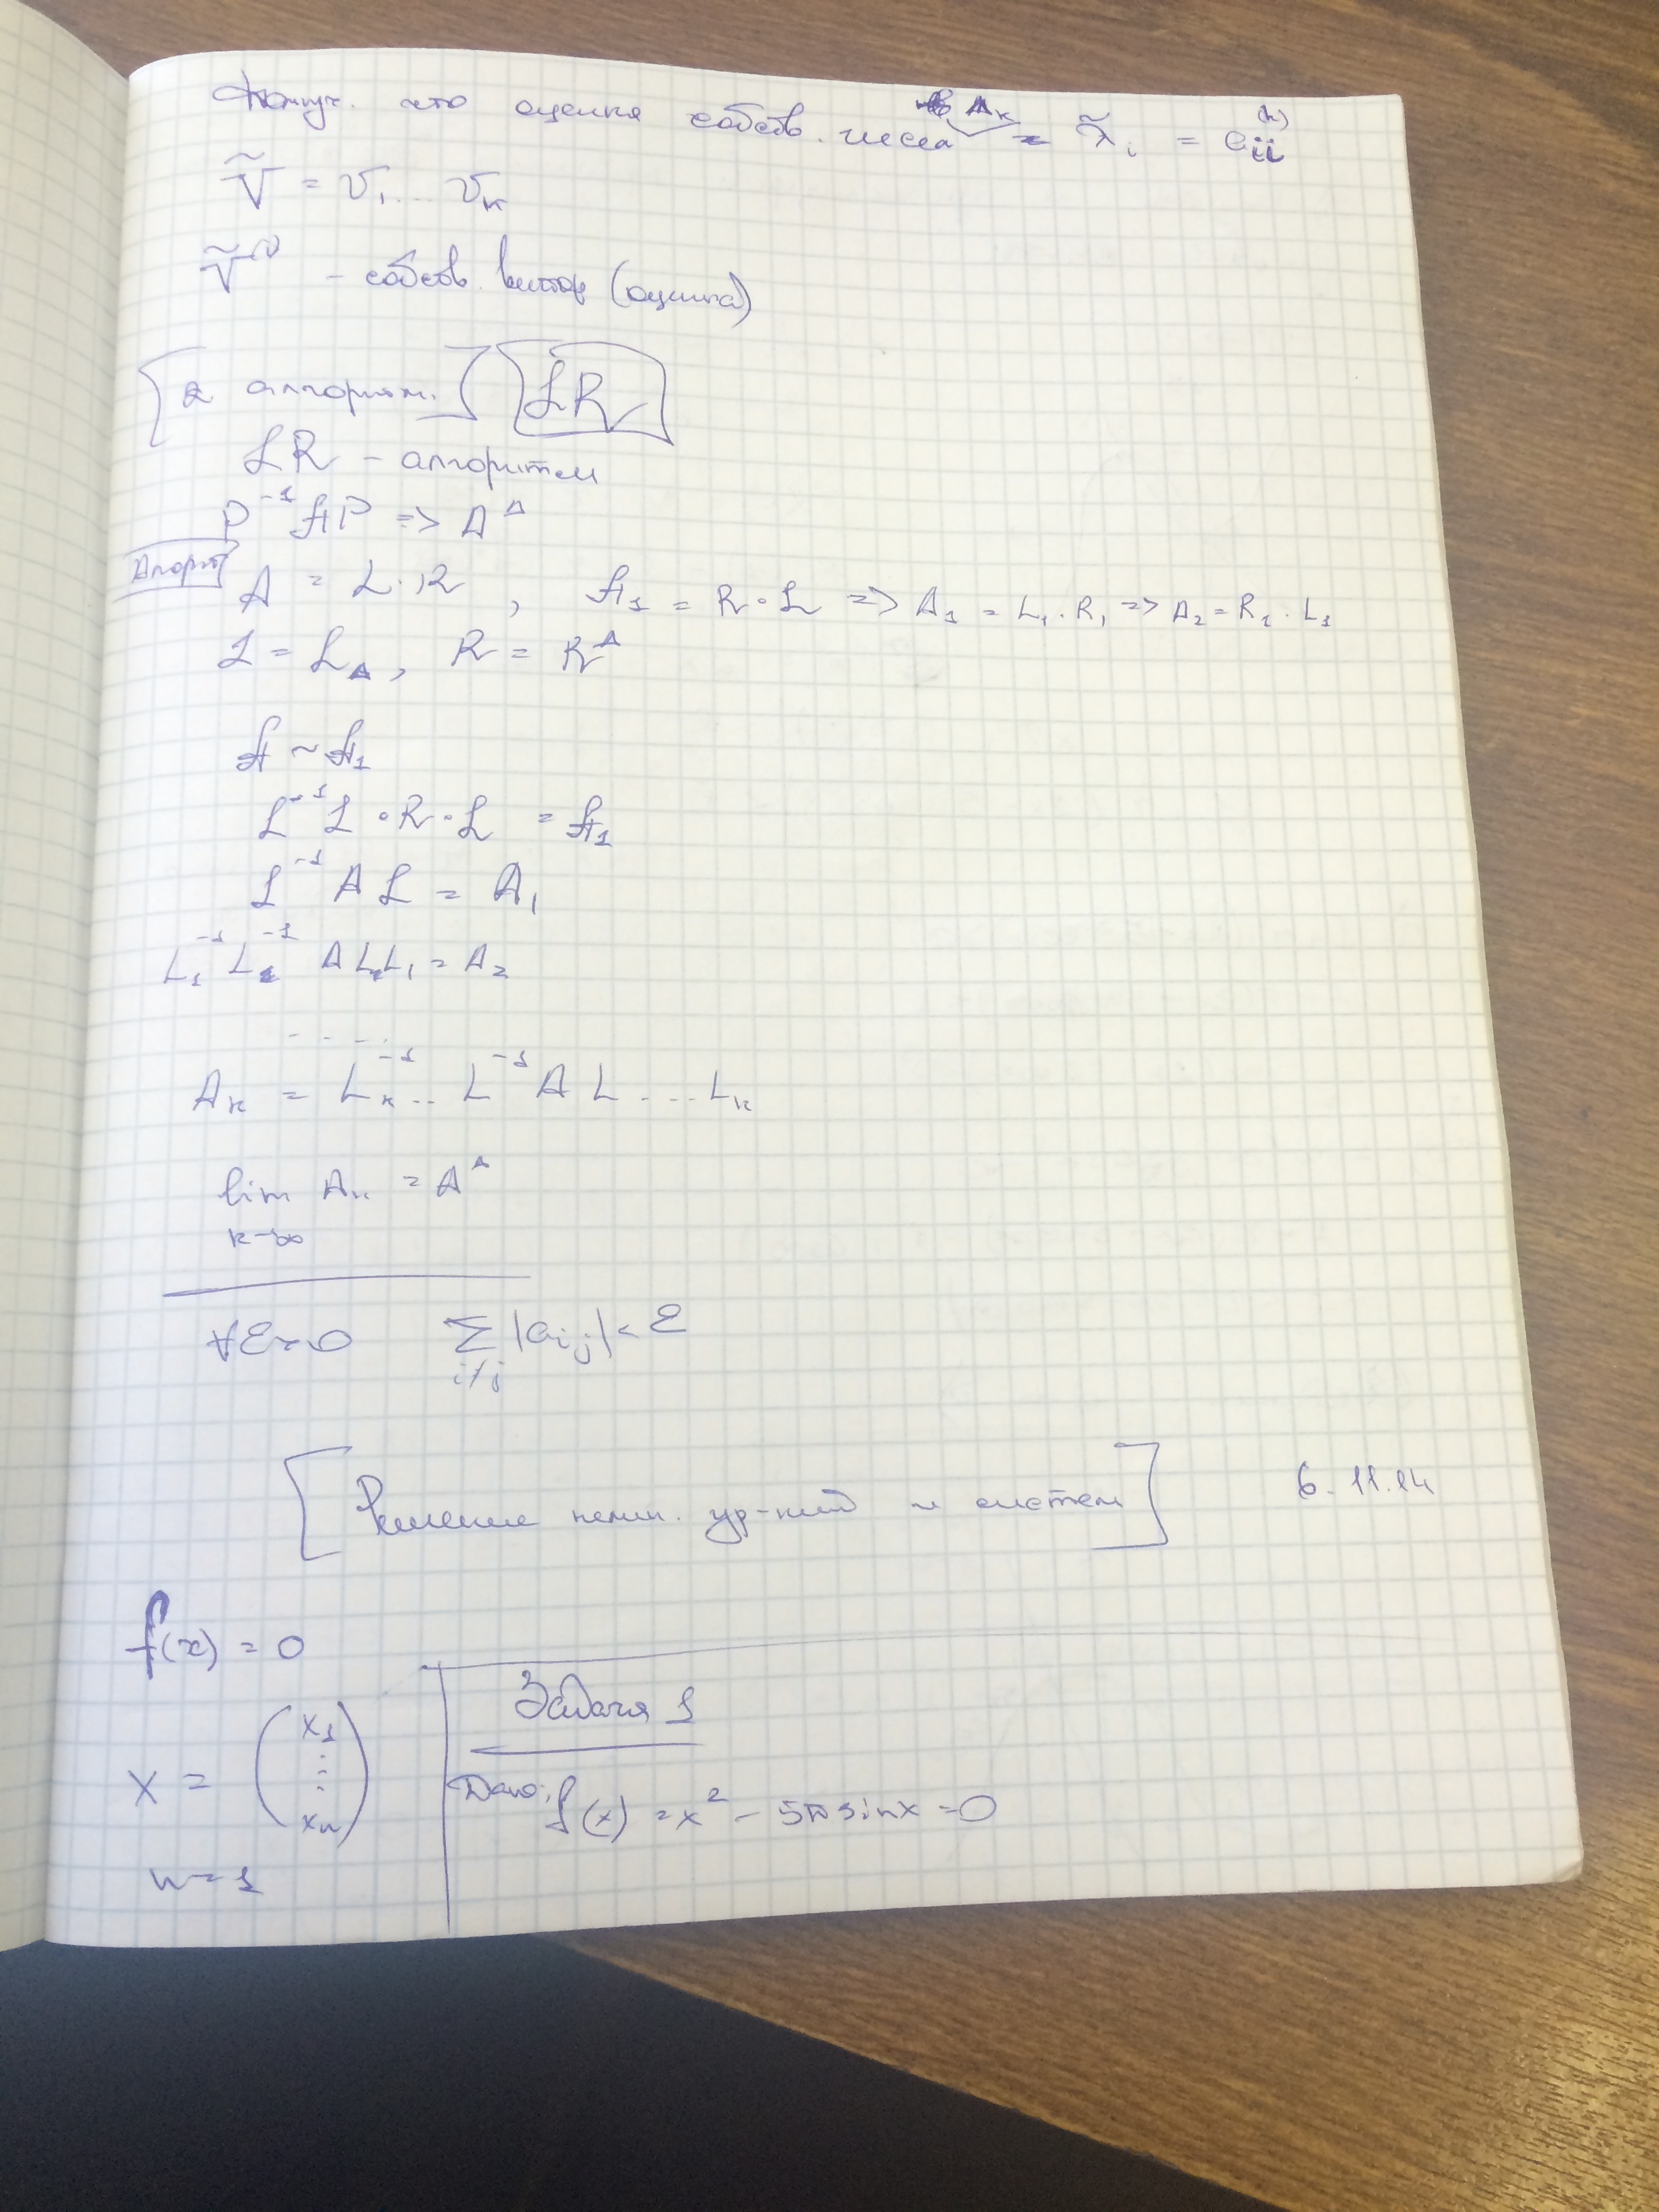 что оценка собств. числа в A_k = λ̃_i = a_ii^(k)
Ṽ = V_1 ... V_k
Ṽ^(i) - собств. вектор (оценка)
[2 алгоритм.] LR
LR - алгоритм
P^-1 A P => A^Δ
Алгорит
A = L · R , A_1 = R · L => A_1 = L_1 · R_1 => A_2 = R_1 · L_1
L = L_Δ , R = R^Δ
A ~ A_1
L^-1 L · R · L = A_1
L^-1 A L = A_1
L_1^-1 L^-1 A L L_1 = A_2
. . . .
A_k = L_k^-1 ... L^-1 A L ... L_k
lim A_k = A^Δ
k→∞
∀ε>0 ∑ |a_ij| < ε
i≠j
[Решение нелин. ур-ний и систем] 6.11.14
f(x) = 0
Задача 1
x = (x_1 ⋮ x_n)
Дано: f(x) = x^2 - 5π sinx = 0
n = 1